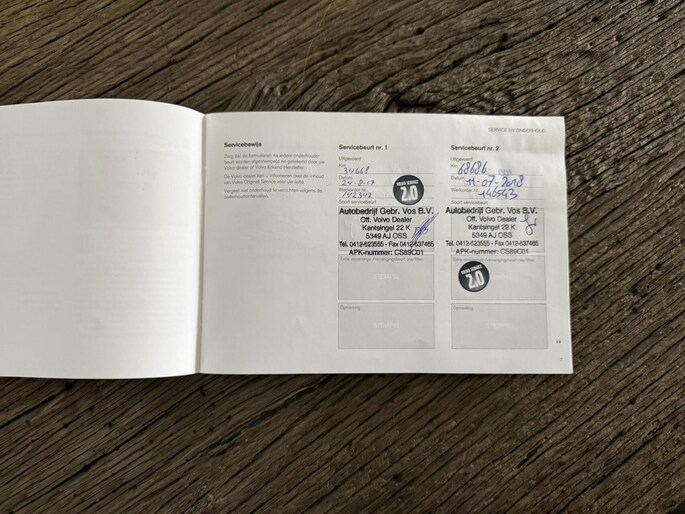 SERVICE EN ONDERHOUD
Servicebewijs
Zorg dat de formulieren na iedere onderhouds-
beurt worden afgestempeld en getekend door uw
Volvo-dealer of Volvo Erkend Hersteller.
De Volvo-dealer kan u informeren over de inhoud
van Volvo Original Service voor uw auto.
Vergeet niet onderhoud te verrichten volgens de
onderhoudsintervallen.
Servicebeurt nr. 1
Uitgevoerd
Km
34668
Datum
Werkorder nr.
142342
Soort servicebeurt
VOLVO SERVICE
2.0
Autobedrijf Gebr. Vos B.V.
Off. Volvo Dealer
Kantsingel 22 K
5349 AJ OSS
Tel. 0412-623555 - Fax 0412-637465
APK-nummer: CS89C01
STEMPEL
Opmerking
STEMPEL
Servicebeurt nr. 2
Uitgevoerd
Km
68686
Datum
11-07-2018
Werkorder nr.
146543
Soort servicebeurt
Autobedrijf Gebr. Vos B.V.
Off. Volvo Dealer
Kantsingel 22 K
5349 AJ OSS
Tel. 0412-623555 - Fax 0412-637465
APK-nummer: CS89C01
VOLVO SERVICE
2.0
Opmerking
STEMPEL
7